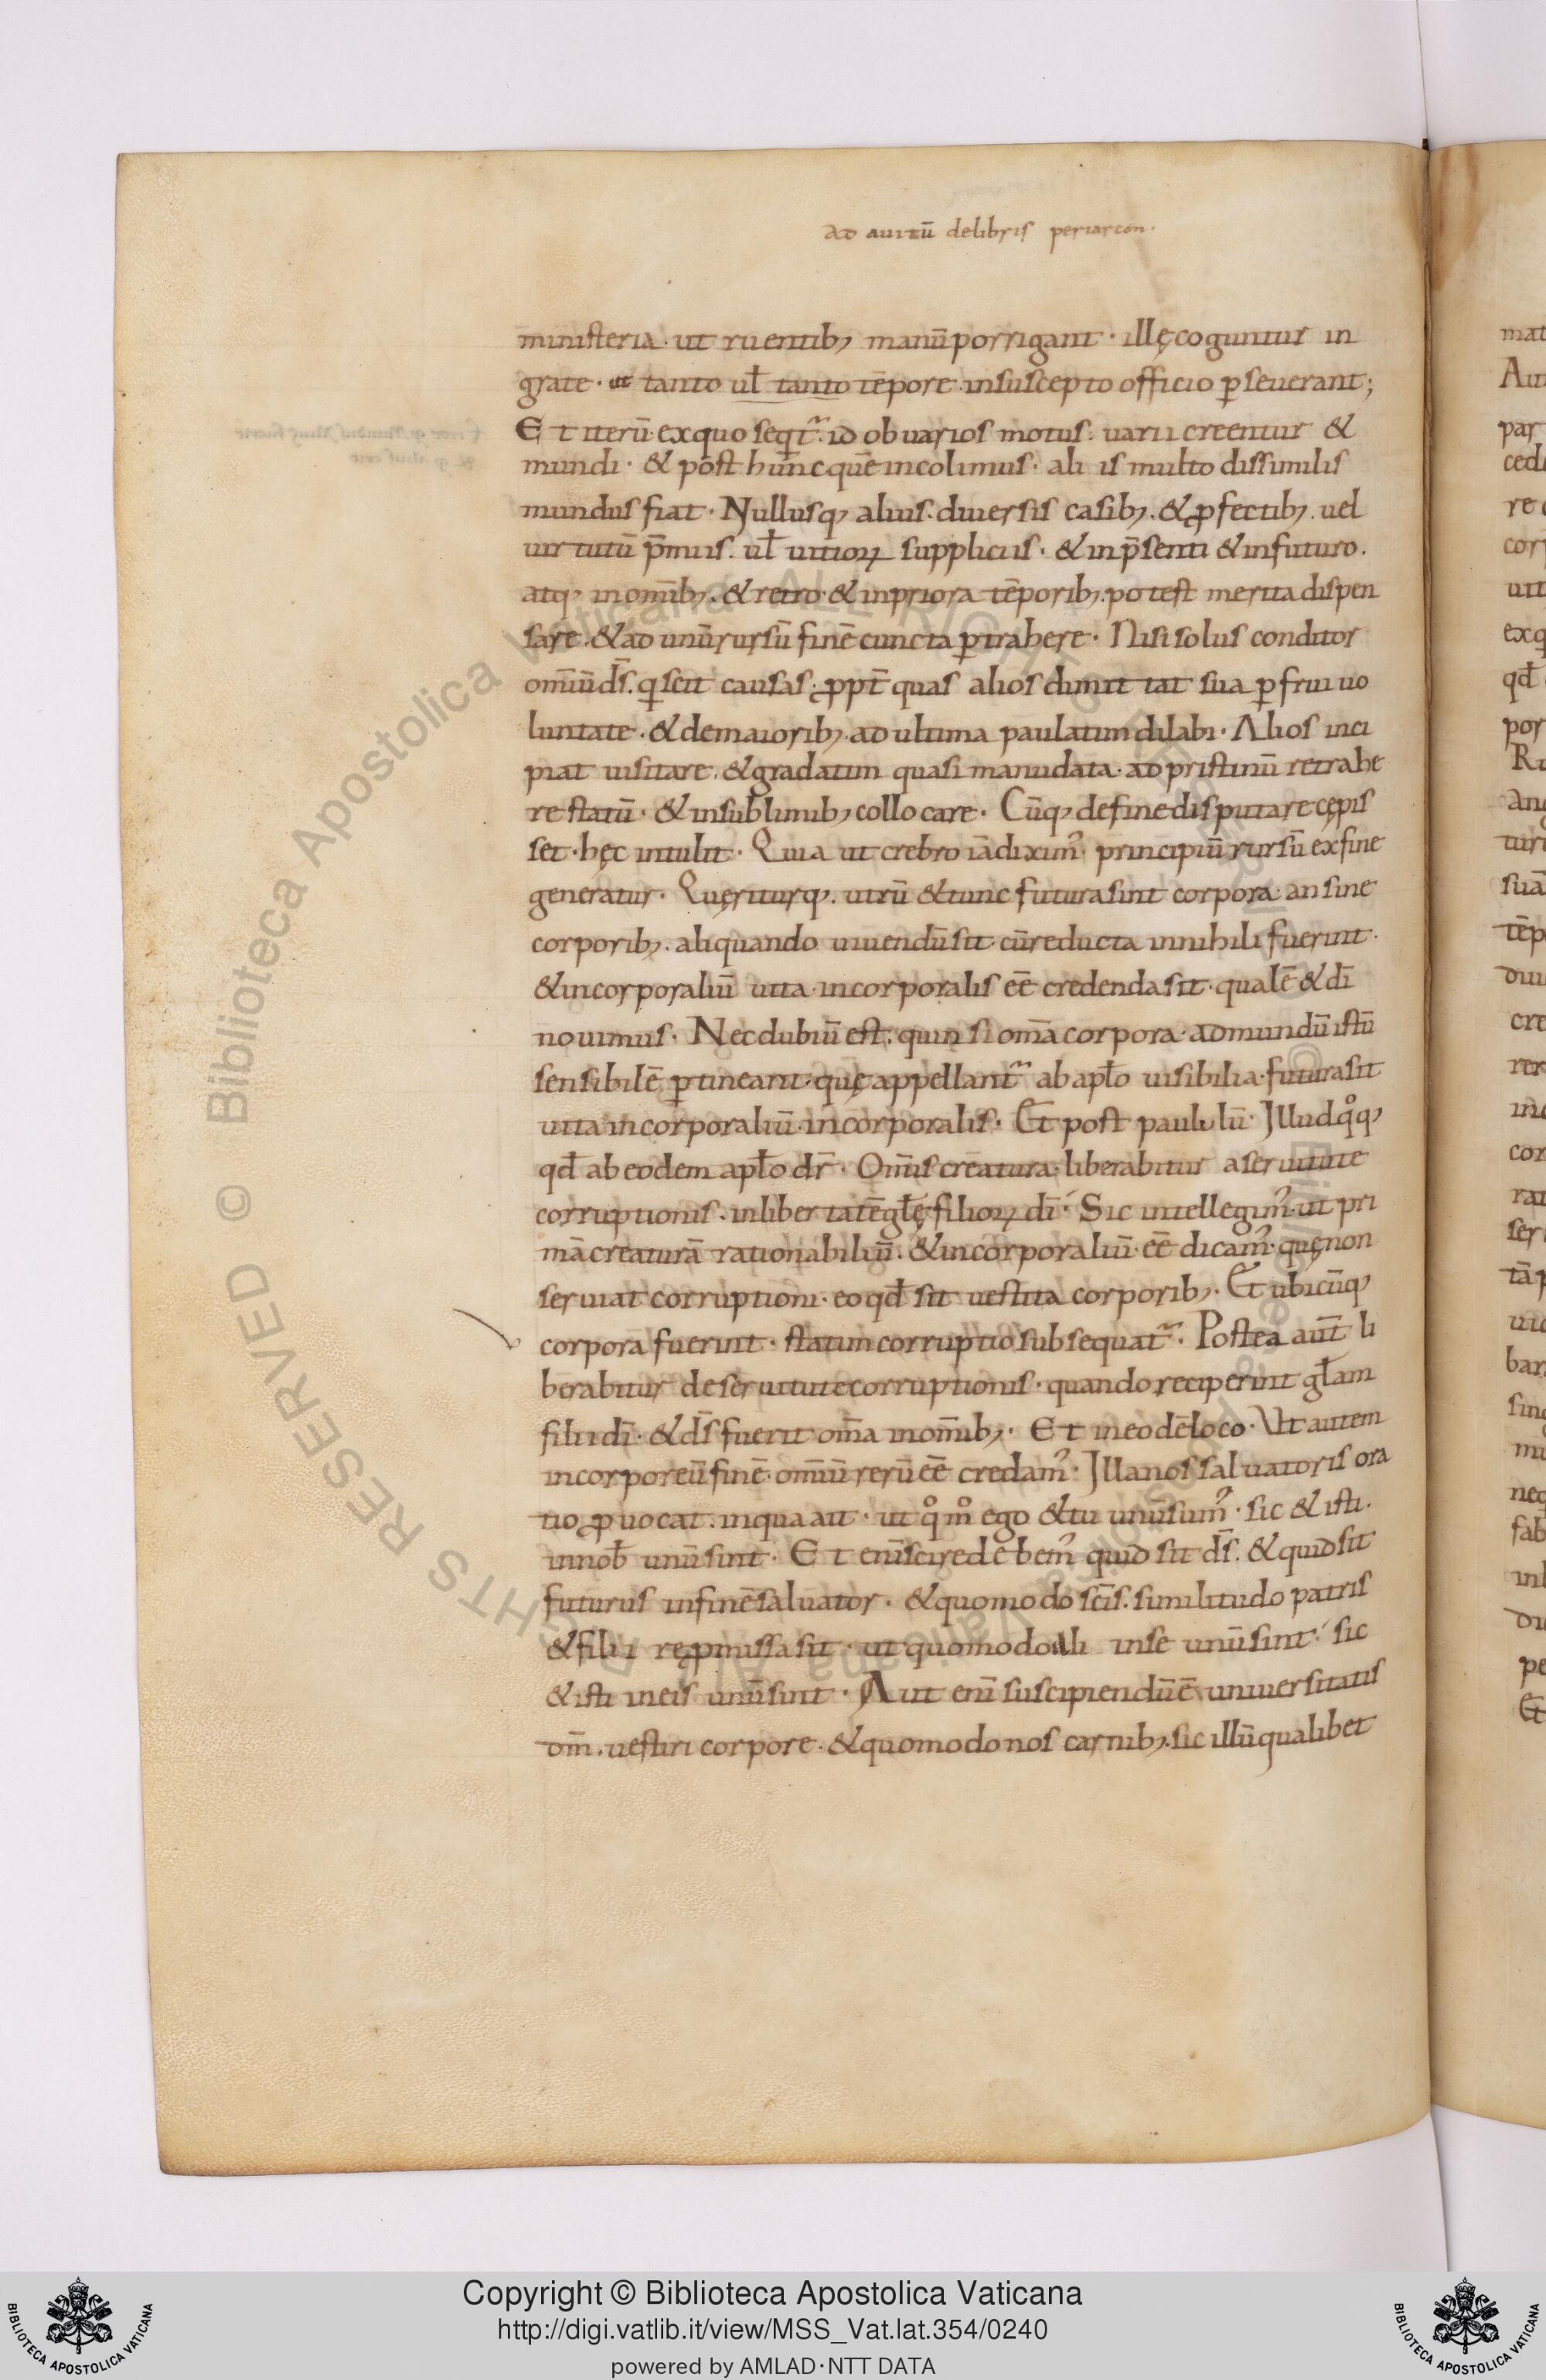 ad auitū delibris periarcon·
ministeria· ut ruentib; manū porrigant· illę coguntur in
grate· ut tanto ul̄ tanto tēpore insuscepto officio ꝑseuerant;
Et iterū· ex quo seqt̃· id ob uarios motus· uarii creentur &
mundi· & post hunc quē incolimus· ali is multo dissimilis
mundus fiat· Nullusq; alius· diuersis casib;· & ꝓfectib;· uel
uirtutū p̄miis· ul̄ uitioꝝ suppliciis· & inp̄senti & infuturo·
atq; inom̄ib;· & retro· & inpriora tēporib;· potest merita dispen
sare· & ad unū rursū finē cuncta ꝑtrahere· Nisi solus conditor
om̄iū d̄s· q̣ scit causas· ꝓpt̄ quas alios dimittat sua ꝑfrui uo
luntate· & demaiorib; ad ultima paulatim dilabi· Alios inci
piat uisitare· & gradatim quasi manu data· ad pristinū retrahe
re statū· & insublimib; collocare· Cūq; define disputare cępis
set· hęc intulit· Quia ut crebro iā diximꝰ· principiū rursū ex fine
generatur· Quęriturq;· utrū & tunc futura sint corpora· an sine
corporib;· aliquando uiuendū sit· cū reducta innihili fuerint·
& incorporaliū uita· incorporalis eē credenda sit· qualē & dī
nouimus· Nec dubiū est· quin si om̄a corpora· ad mundū istū
sensibilē ꝑtineant· quę appellant̃ ab apl̄o uisibilia· futura sit
uita incorporaliū· incorporalis· Et post paululū· Illud qͦq;
qd̄ ab eodem apl̄o dr̄· Om̄is creatura· liberabitur a seruitute
corruptionis· inlibertatē gl̄ę filioꝝ dī· Sic intellegimꝰ· ut pri
mā creaturā rationabiliū· & incorporaliū· eē dicamꝰ· quę non
seruiat corruptioni· eo qd̄ sit uestita corporib;· Et ubicūq;
corpora fuerint· statim corruptio subsequat̃· Postea aut̄ li
berabitur de seruitute corruptionis· quando reciperint gl̄am
filii dī· & d̄s fuerit om̄a inom̄ib;· Et ineodē loco· Ut autem
incorporeū finē· om̄iū rerū eē credamꝰ· Illa nos saluatoris ora
tio ꝓuocat· inqua ait· ut qͦmͦ ego & tu unū sumꝰ· sic & isti·
innob̄ unū sint· Et eni scire debemꝰ quid sit d̄s· & quid sit
futurus infinē saluator· & quomodo sc̄is· similitudo patris
& filii reꝓmissa sit· ut quomodo illi inse unū sint· sic
& isti ineis unū sint· Aut enī suscipiendū ē· uniuersitatis
dm̄· uestiri corpore· & quomodo nos carnib;· sic illū qualibet
Biblioteca Apostolica Vaticana
© ALL RIGHTS RESERVED
Copyright © Biblioteca Apostolica Vaticana
http://digi.vatlib.it/view/MSS_Vat.lat.354/0240
powered by AMLAD·NTT DATA
BIBLIOTECA APOSTOLICA VATICANA
BIBLIOTECA APOSTOLICA VATICANA